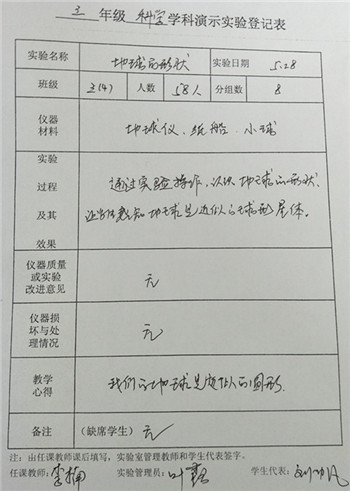 三年级 科学 学科演示实验登记表
实验名称 地球的形状 实验日期 5.28
班级 三(4) 人数 58人 分组数 8
仪器材料 地球仪、纸船、小球
实验过程及其效果 通过实验操作，认识地球的形状，
地球是近似的球形星体。
仪器质量或实验改进意见 无
仪器损坏与处理情况 无
教学心得 我们的地球是近似的圆形
备注 (缺席学生) 无
注：由任课教师课后填写，实验室管理教师和学生代表签字。
任课教师： 实验管理员：叶 学生代表：